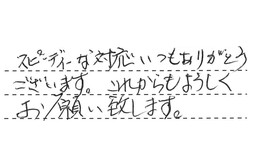 スピーディーな対応いつもありがとう
ございます。これからもよろしく
お願い致します。